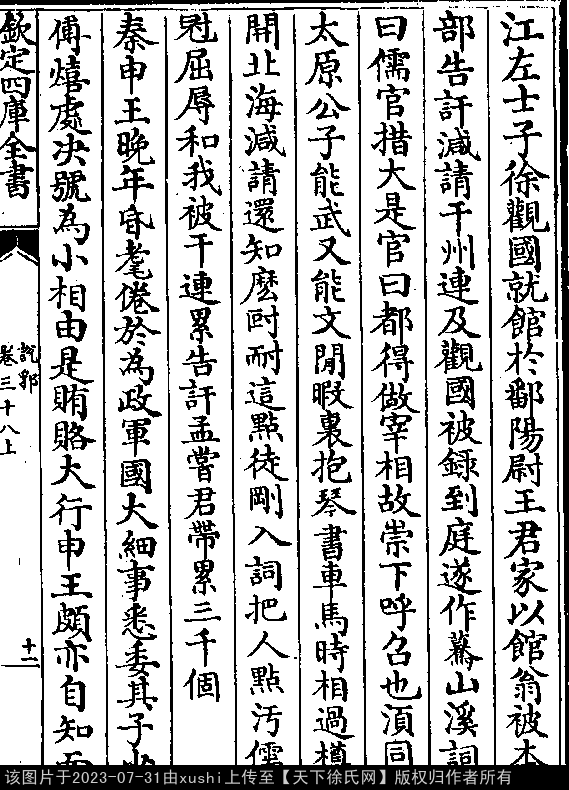 江左士子徐觀國就館於鄱陽尉王君家以館翁被本
部告訐減請干州連及觀國被錄到庭遂作驀山溪詞
曰儒官措大是官曰都得做宰相故崇下呼召也須同
太原公子能武又能文閒暇裏抱琴書車馬時相過樽
開北海減請還知麽尀耐這點徒剛入詞把人點汚儒
冠屈辱和我被干連累告訐孟嘗君帶累三千個
秦申王晚年昏耄倦於為政軍國大細事悉委其子少
傅熺處决號為小相由是賄賂大行申王頗亦自知而
欽定四庫全書
說郛
卷三十八上
十一
该图片于2023-07-31由xushi上传至【天下徐氏网】版权归作者所有